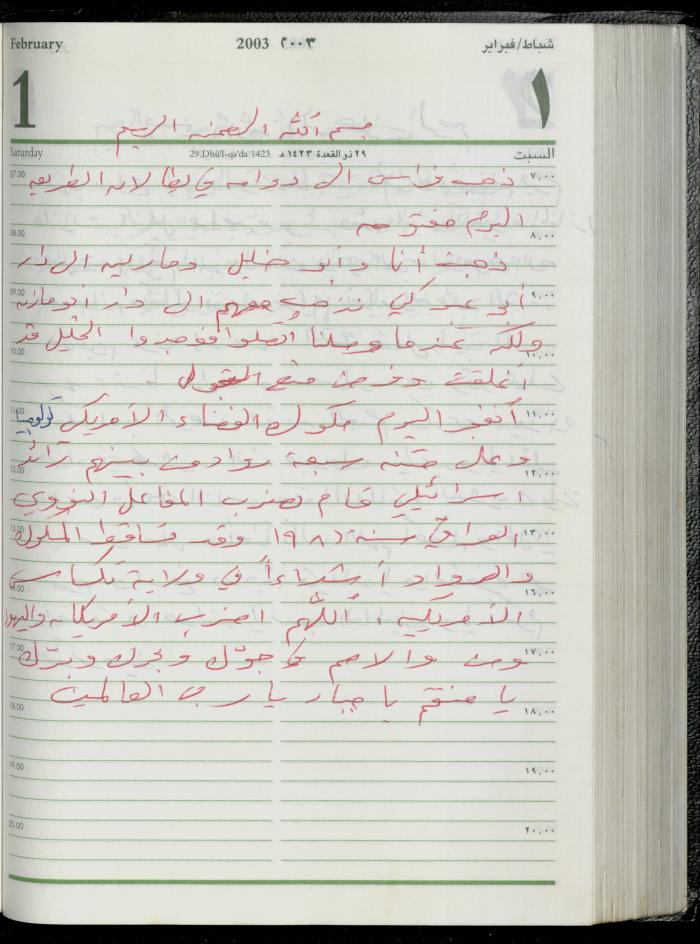 February 2003 ٢٠٠٣ شباط/فبراير
1 ١
بسم الله الرحمن الرحيم
Saturday 29 Dhū'l-qa'da 1423 ٢٩ ذو القعدة ١٤٢٣ هـ السبت
07.00 ذهب فراس الى دوامه في يطا لان الطريق ٧,٠٠
اليوم مفتوحه
08.00 ٨,٠٠
ذهبت أنا وأبو خليل ومارين الى دار
09.00 أبو عو كي نذهب معهم الى دار أبو مازن ٩,٠٠
ولكن عندما وصلنا اتصلوا فوجدوا الخليل قد
10.00 ١٠,٠٠
أغلقت وفرض منع التجول
11.00 أنفجر اليوم مكوك الفضاء الأمريكي كولومبيا ١١,٠٠
وعلى متنه سبعة رواد من بينهم رائد
12.00 ١٢,٠٠
اسرائيلي قام بضرب المفاعل النووي
13.00 العراقي سنة ١٩٨١ وقد تساقط المكوك ١٣,٠٠
والرواد أشلاءاً في ولاية تكساس
١٦,٠٠
الأمريكية ، اللهم اضرب الأمريكان واليهود
17.00 ومن والاهم في جوّك وبحرك وبرّك ١٧,٠٠
يا منتقم يا جبار يا رب العالمين
18.00 ١٨,٠٠
19.00 ١٩,٠٠
20.00 ٢٠,٠٠